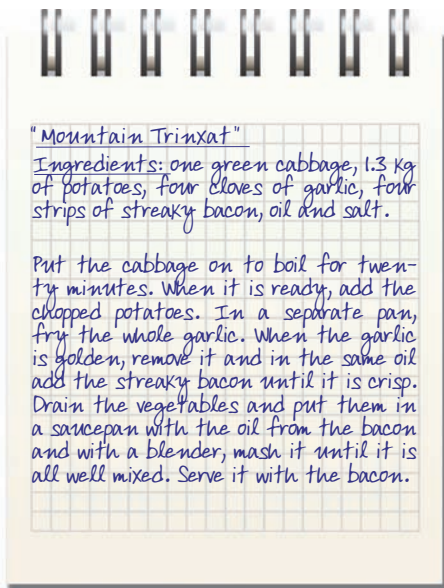 "Mountain Trinxat"
Ingredients: one green cabbage, 1.3 Kg
of potatoes, four cloves of garlic, four
strips of streaky bacon, oil and salt.
Put the cabbage on to boil for twen-
ty minutes. When it is ready, add the
chopped potatoes. In a separate pan,
fry the whole garlic. When the garlic
is golden, remove it and in the same oil
add the streaky bacon until it is crisp.
Drain the vegetables and put them in
a saucepan with the oil from the bacon
and with a blender, mash it until it is
all well mixed. Serve it with the bacon.